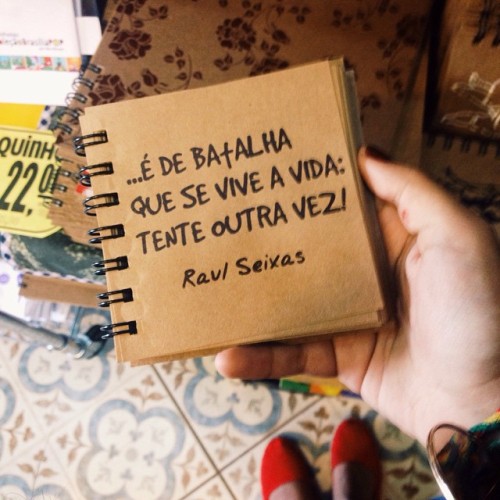 ...É DE BATALHA
QUE SE VIVE A VIDA:
TENTE OUTRA VEZ!
Raul Seixas
22,